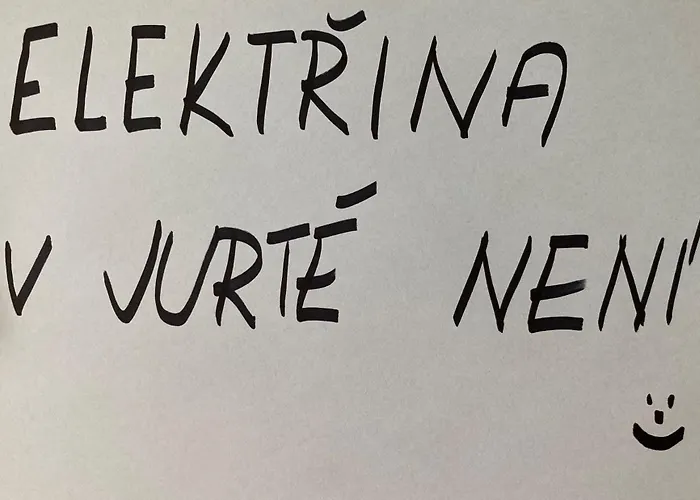 ELEKTŘINA
V JURTÉ NENÍ